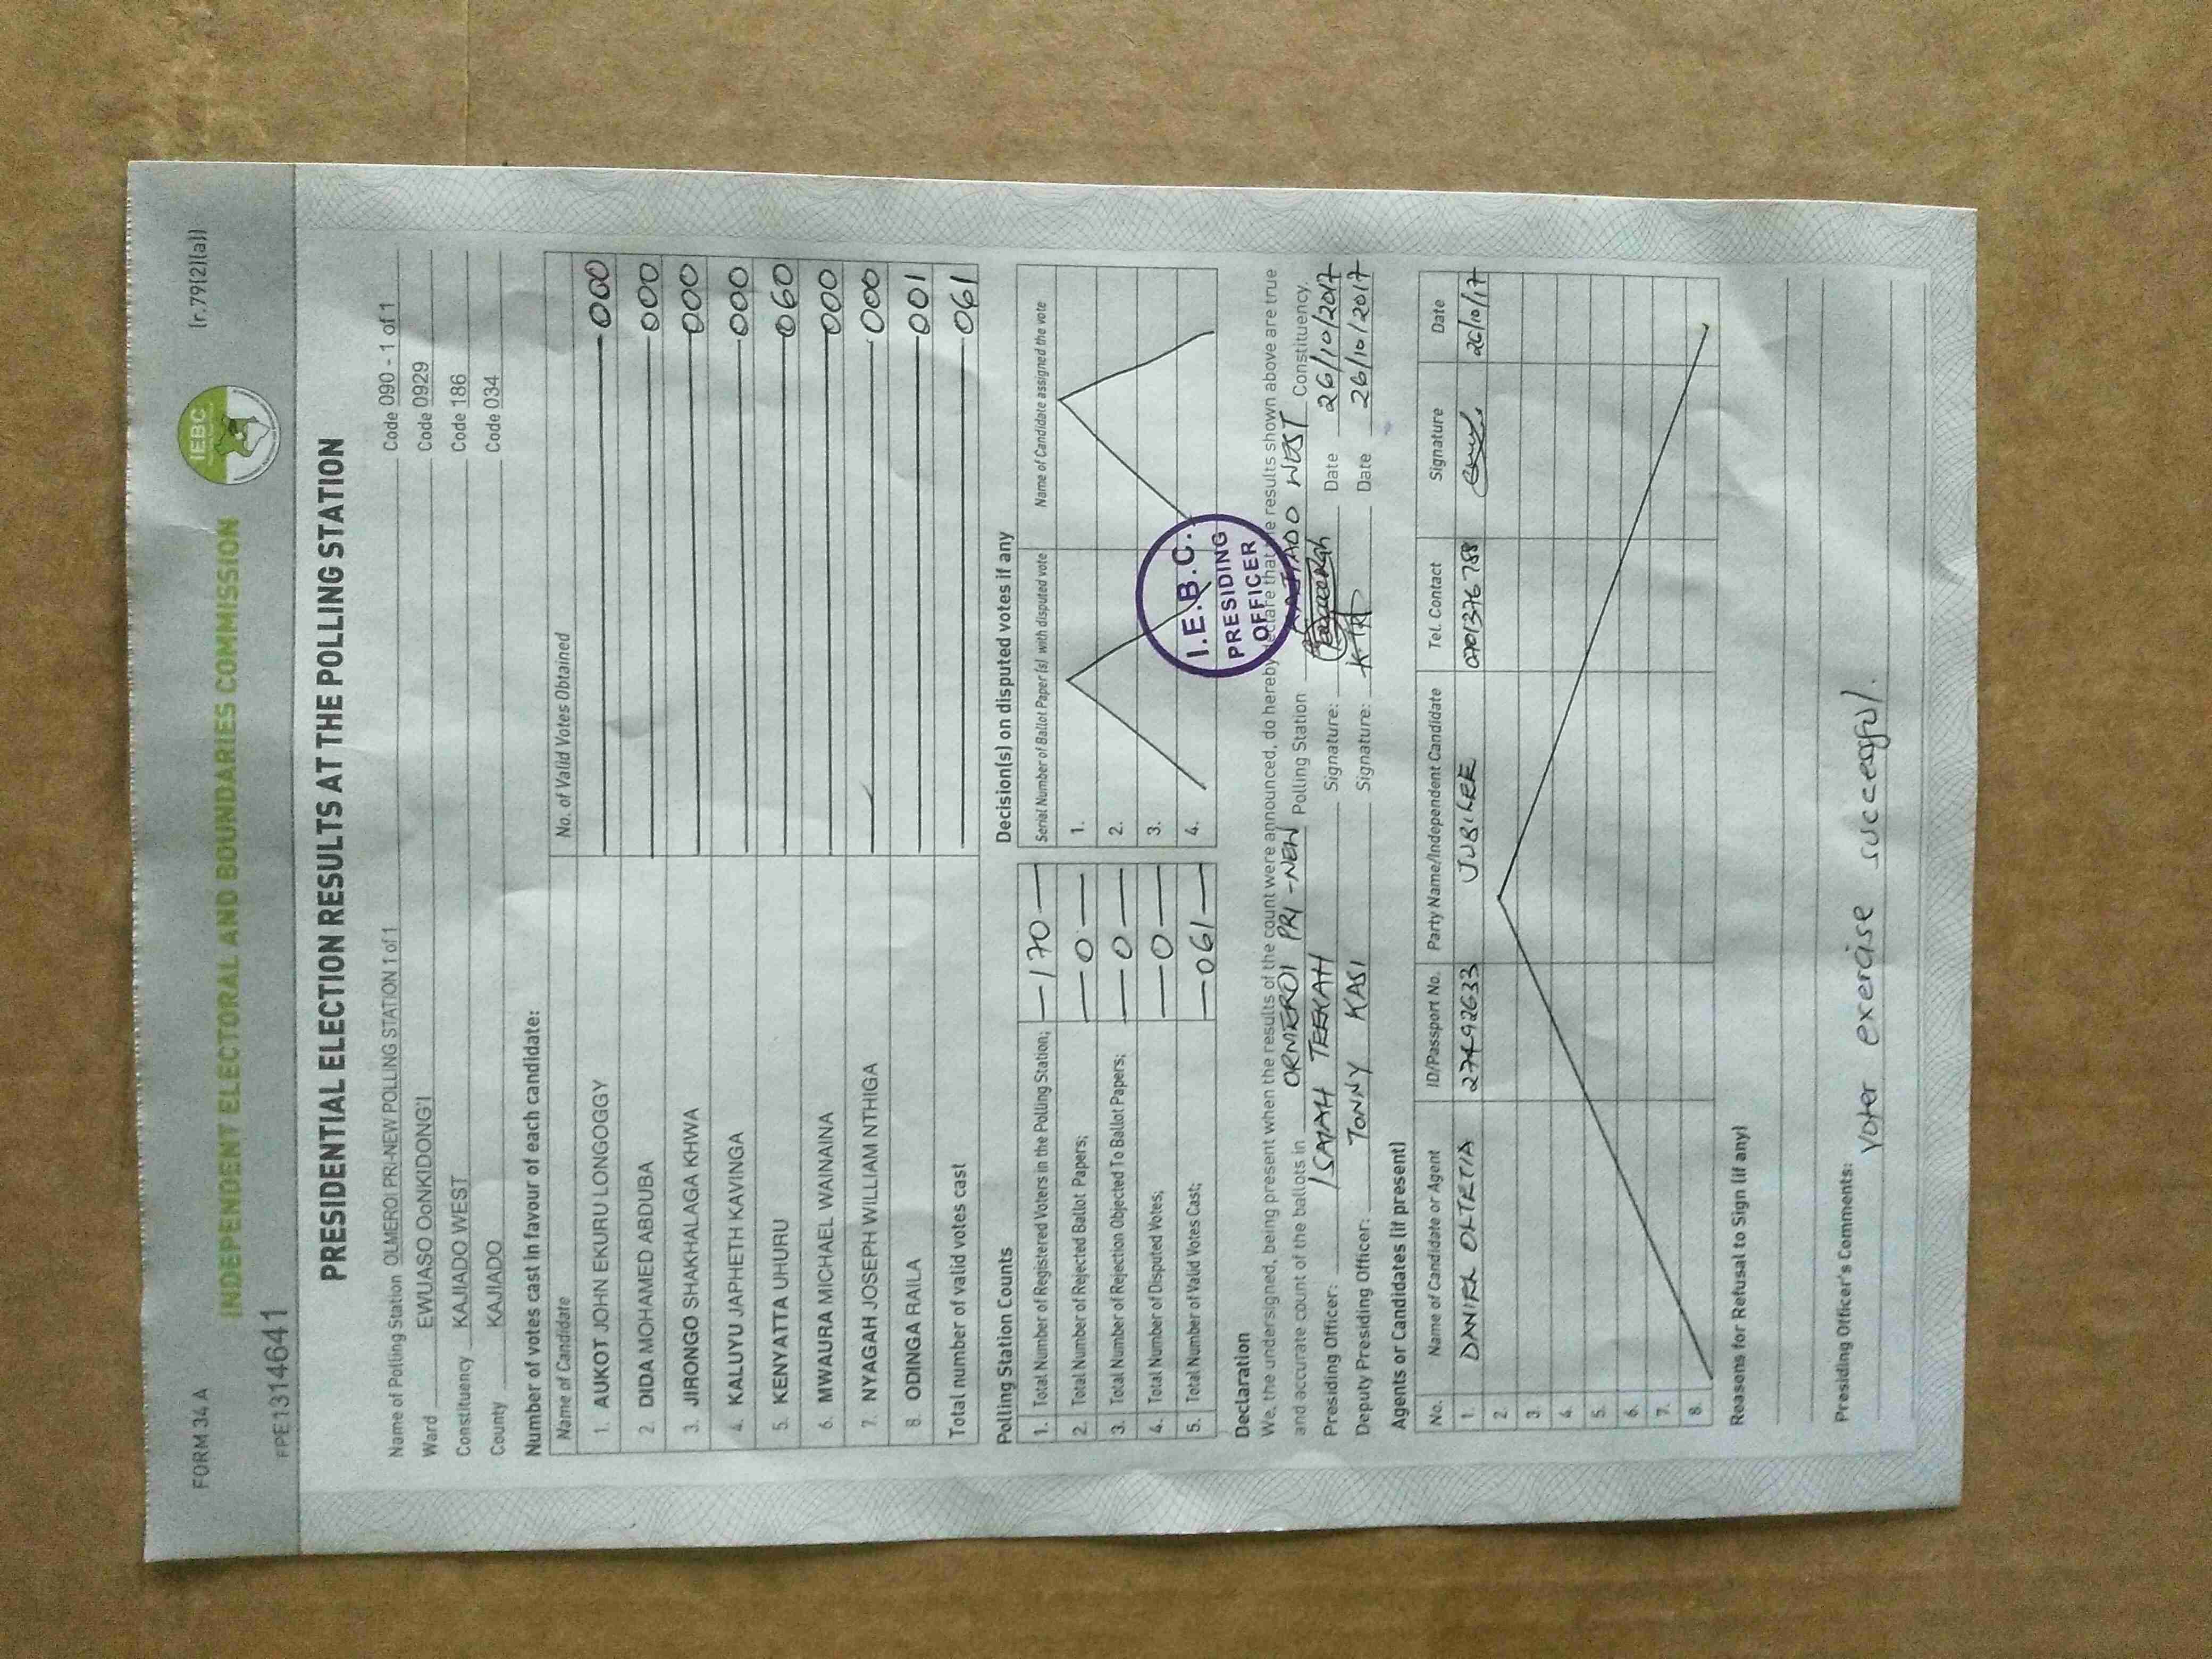 FORM 34 A
(r.79(2)(a))
IEBC
INDEPENDENT ELECTORAL AND BOUNDARIES COMMISSION
PPE1314641
PRESIDENTIAL ELECTION RESULTS AT THE POLLING STATION
Name of Polling Station OLMEROI PRI-NEW POLLING STATION 1 of 1 Code 090 - 1 of 1
Ward EWUASO OoNKIDONG'I Code 0929
Constituency KAJIADO WEST Code 186
County KAJIADO Code 034
Number of votes cast in favour of each candidate:
Name of Candidate No. of Valid Votes Obtained
1. AUKOT JOHN EKURU LONGOGGY 000
2. DIDA MOHAMED ABDUBA 000
3. JIRONGO SHAKHALAGA KHWA 000
4. KALUYU JAPHETH KAVINGA 000
5. KENYATTA UHURU 060
6. MWAURA MICHAEL WAINAINA 000
7. NYAGAH JOSEPH WILLIAM NTHIGA 000
8. ODINGA RAILA 001
Total number of valid votes cast 061
Polling Station Counts
1. Total Number of Registered Voters in the Polling Station; 170
2. Total Number of Rejected Ballot Papers; 0
3. Total Number of Rejection Objected To Ballot Papers; 0
4. Total Number of Disputed Votes; 0
5. Total Number of Valid Votes Cast; 061
Decision(s) on disputed votes if any
Serial Number of Ballot Paper (s) with disputed vote Name of Candidate assigned the vote
1.
2.
3.
4.
I.E.B.C.
PRESIDING
OFFICER
Declaration
We, the undersigned, being present when the results of the count were announced, do hereby declare that the results shown above are true
and accurate count of the ballots in ORMEROI PRI-NEW Polling Station KAJIADO WEST Constituency.
Presiding Officer: ISAIAH TEEKAH Signature: Date 26/10/2017
Deputy Presiding Officer: TONNY KASI Signature: Date 26/10/2017
Agents or Candidates (if present)
No. Name of Candidate or Agent ID/Passport No. Party Name/Independent Candidate Tel. Contact Signature Date
1. DANIEL 27492633 JUBILEE 0701376788 26/10/17
2.
3.
4.
5.
6.
7.
8.
Reasons for Refusal to Sign (if any)
Presiding Officer's Comments:
Voter exercise successful.